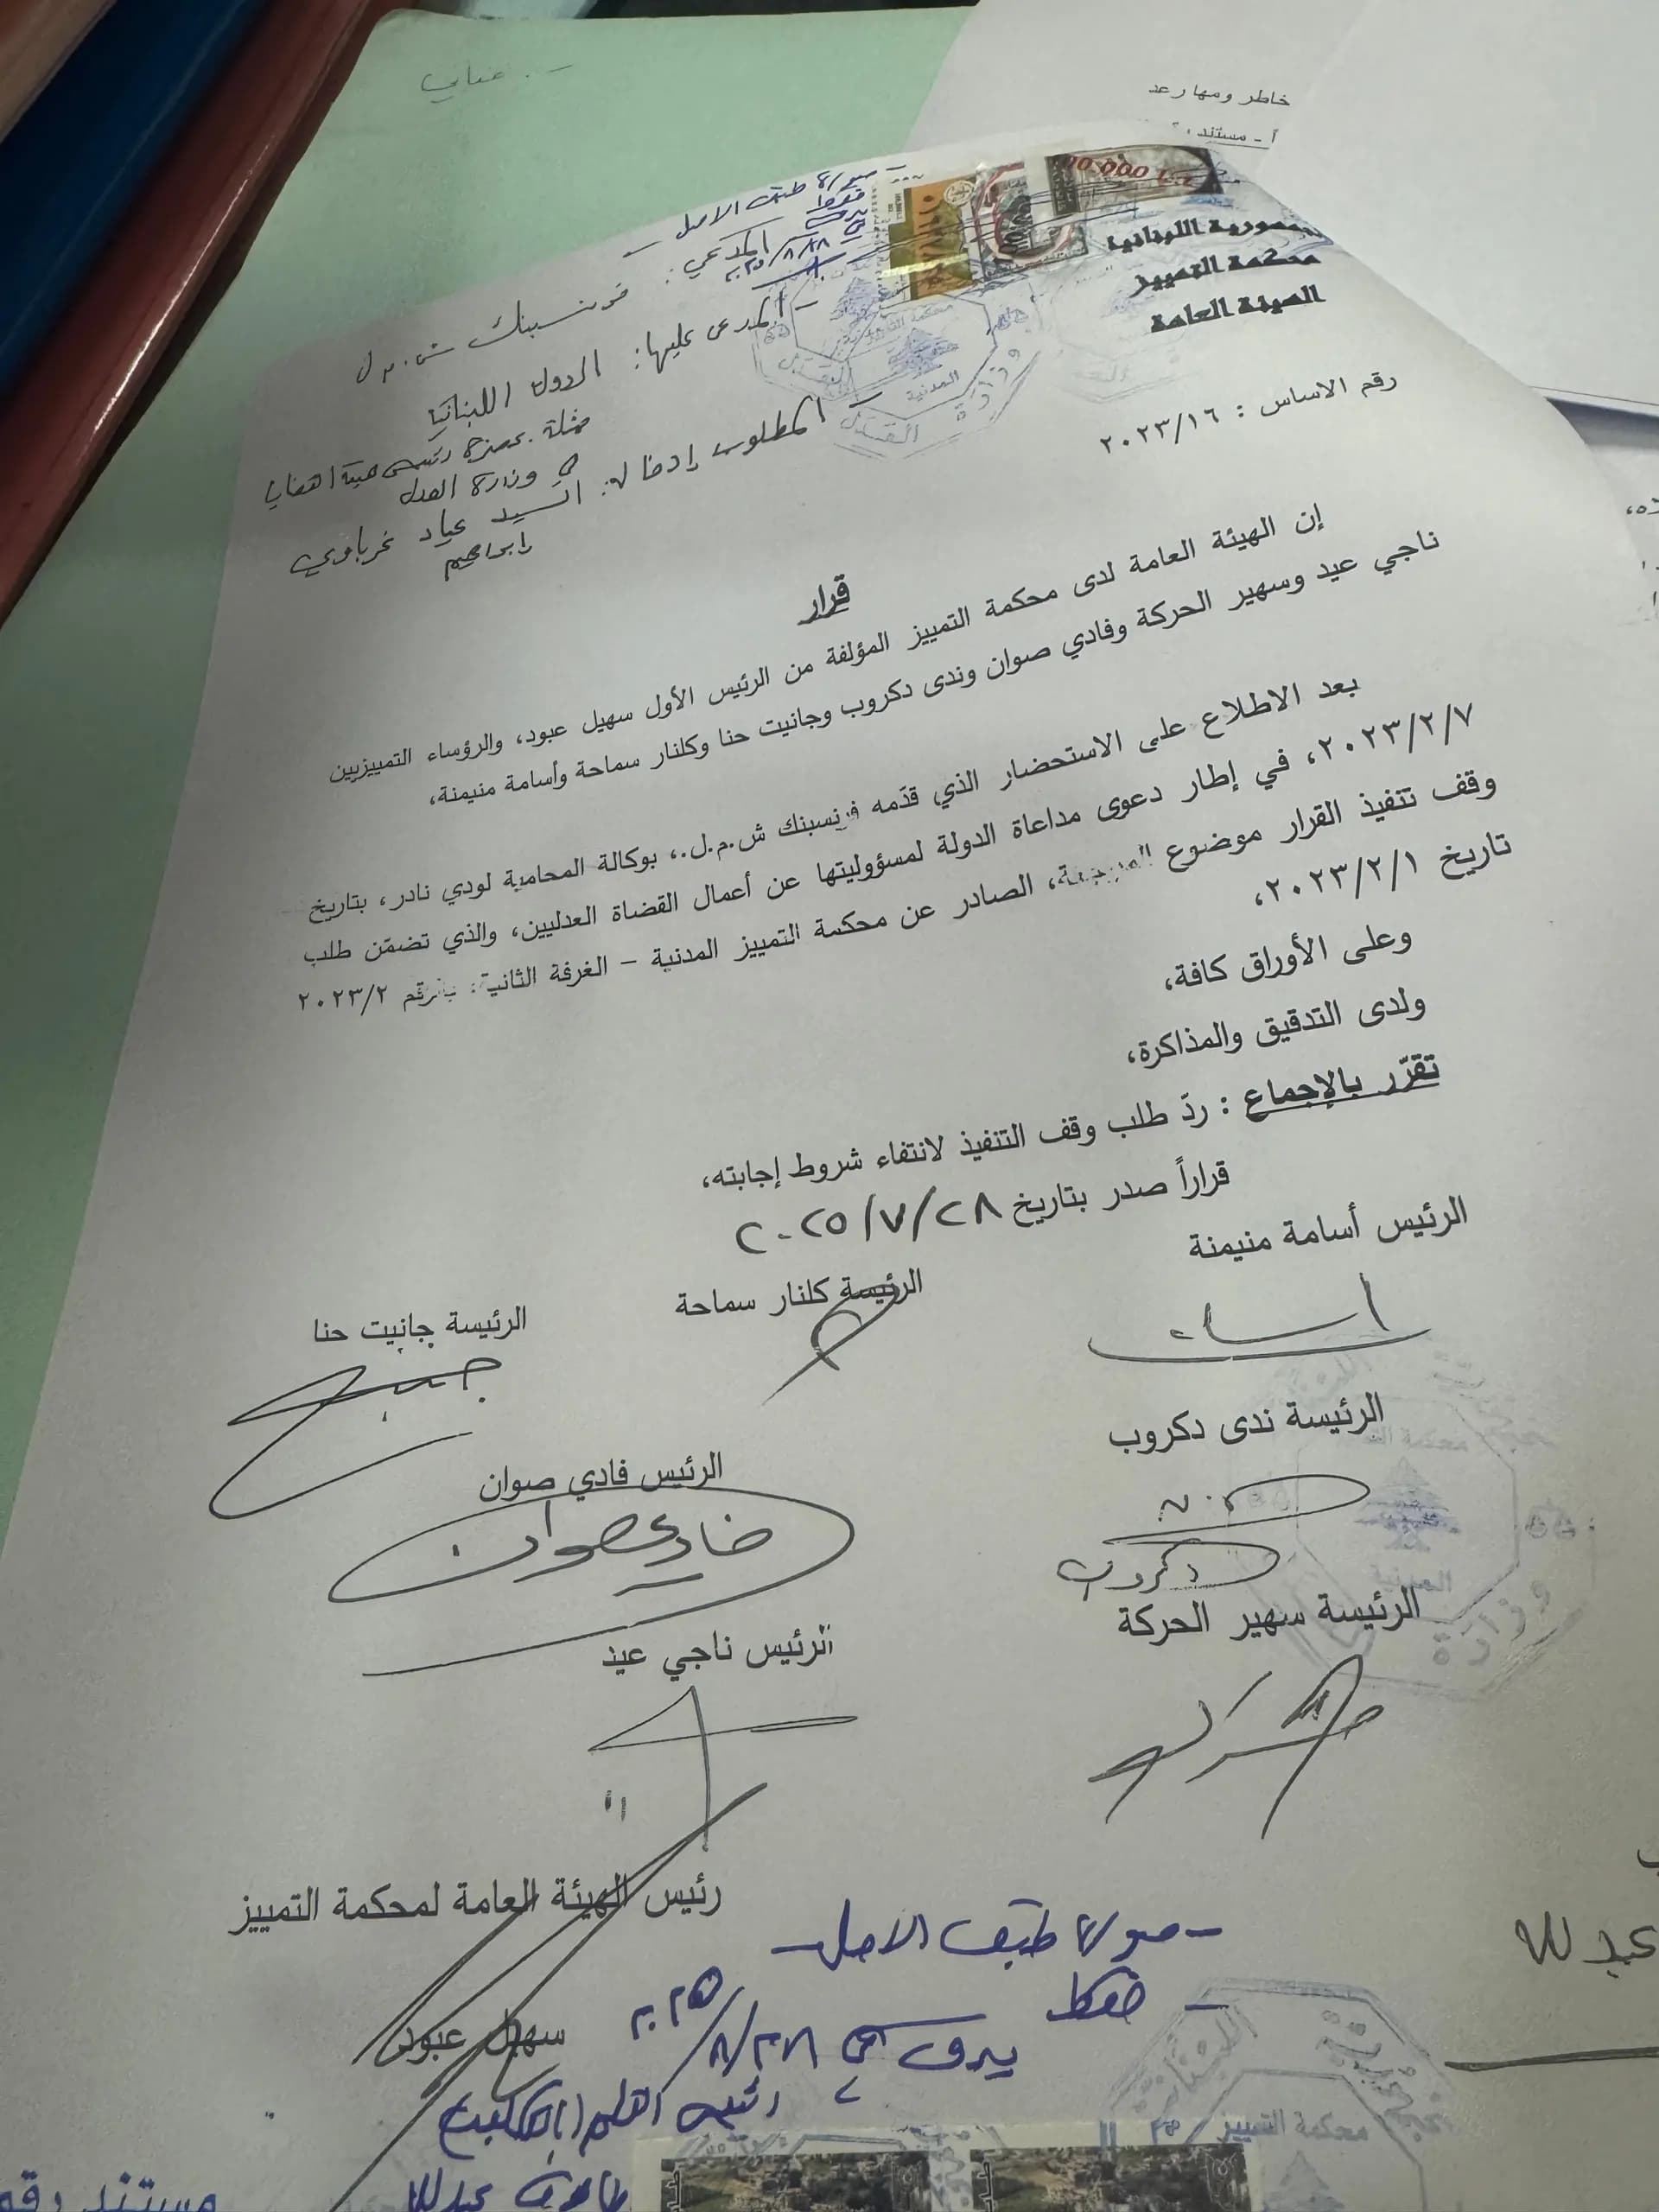 خاطر ومها رعد
أ - مستند
الجمهورية اللبنانية
محكمة التمييز
الهيئة العامة
رقم الاساس : ٢٠٢٣/١٦
- صورة طبق الاصل -
- المدعي: فرنسبنك ش.م.ل
- المدعى عليها: الدولة اللبنانية
ممثلة بحضرة رئيس هيئة القضايا
في وزارة العدل
- المطلوب إدخاله: السيد عياد غرباوي
ابراهيم
قرار
إن الهيئة العامة لدى محكمة التمييز المؤلفة من الرئيس الأول سهيل عبود، والرؤساء التمييزيين
ناجي عيد وسهير الحركة وفادي صوان وندى دكروب وجانيت حنا وكلنار سماحة وأسامة منيمنة،
بعد الاطلاع على الاستحضار الذي قدّمه فرنسبنك ش.م.ل.، بوكالة المحامية لودي نادر، بتاريخ
٢٠٢٣/٢/٧، في إطار دعوى مداعاة الدولة لمسؤوليتها عن أعمال القضاة العدليين، والذي تضمّن طلب
وقف تنفيذ القرار موضوع المراجعة، الصادر عن محكمة التمييز المدنية – الغرفة الثانية: بالرقم ٢٠٢٣/٢
تاريخ ٢٠٢٣/٢/١،
وعلى الأوراق كافة،
ولدى التدقيق والمذاكرة،
تقرّر بالإجماع : ردّ طلب وقف التنفيذ لانتفاء شروط إجابته،
قراراً صدر بتاريخ ٢٠٢٥/٧/٢٨
الرئيس أسامة منيمنة
الرئيسة كلنار سماحة
الرئيسة جانيت حنا
الرئيسة ندى دكروب
الرئيس فادي صوان
فادي صوان
دكروب
الرئيسة سهير الحركة
الرئيس ناجي عيد
رئيس الهيئة العامة لمحكمة التمييز
سهيل عبود
- صورة طبق الاصل -
بيروت في ٢٠٢٥/٨/٢٨
رئيس القلم بالتكليف
محكمة التمييز
مستند رقم